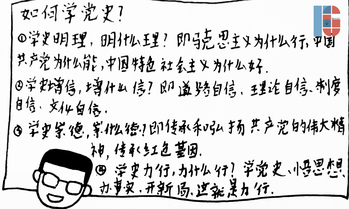 如何学党史？
①学史明理，明什么理？即马克思主义为什么行，中国
共产党为什么能，中国特色社会主义为什么好．
②学史增信，增什么信？即道路自信、理论自信、制度
自信、文化自信．
③学史崇德，崇什么德？即传承和弘扬共产党的伟大精
神，传承红色基因．
④学史力行，为什么行？学党史、悟思想、
办事实、开新局、这就是力行．